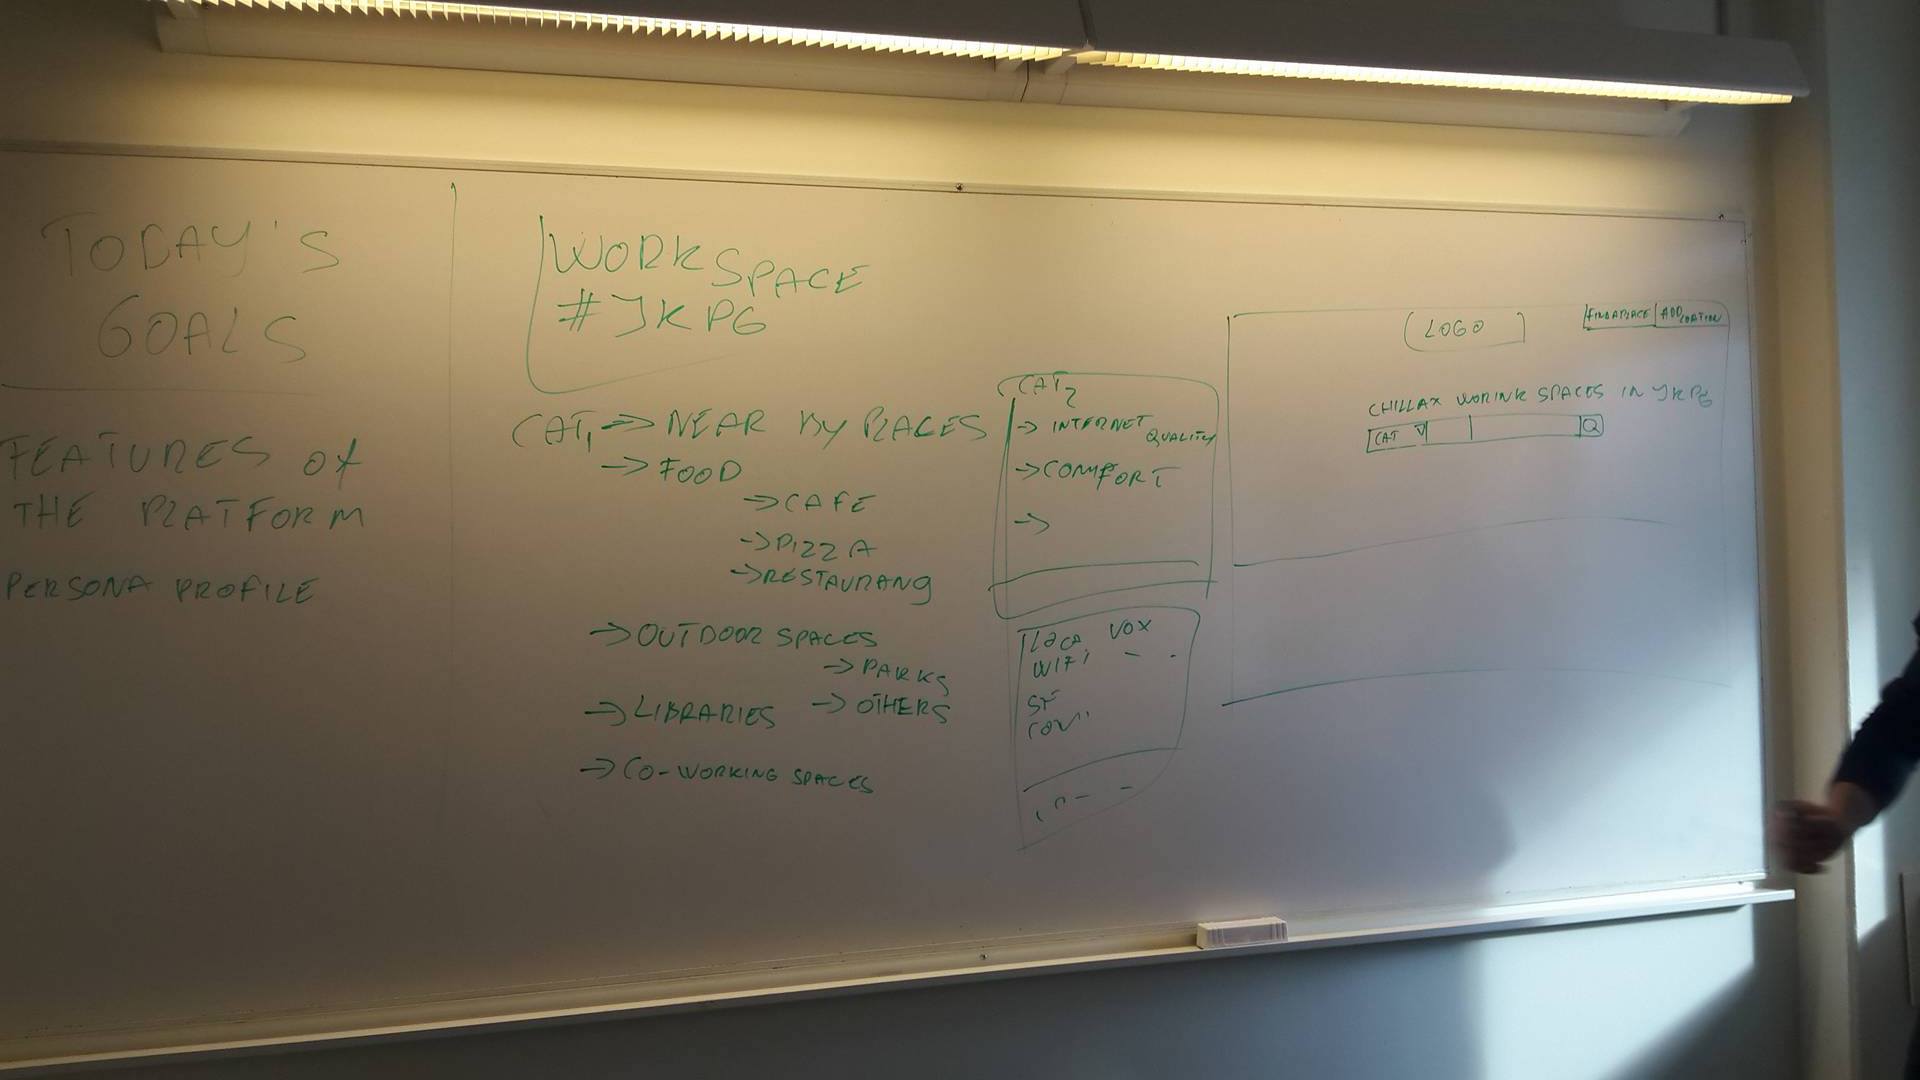 TODAY'S
GOALS
FEATURES OF
THE PLATFORM
PERSONA PROFILE
WORKSPACE
#JKPG
CAT1 → NEAR BY PLACES
→ FOOD
→ CAFE
→ PIZZA
→ RESTAURANG
→ OUTDOOR SPACES
→ PARKS
→ LIBRARIES → OTHERS
→ CO-WORKING SPACES
CAT2
→ INTERNET
QUALITY
→ COMFORT
→
VOX
WIFI
LOGO
FIND A PLACE ADD
CHILLAX WORINK SPACES IN JKPG
CAT